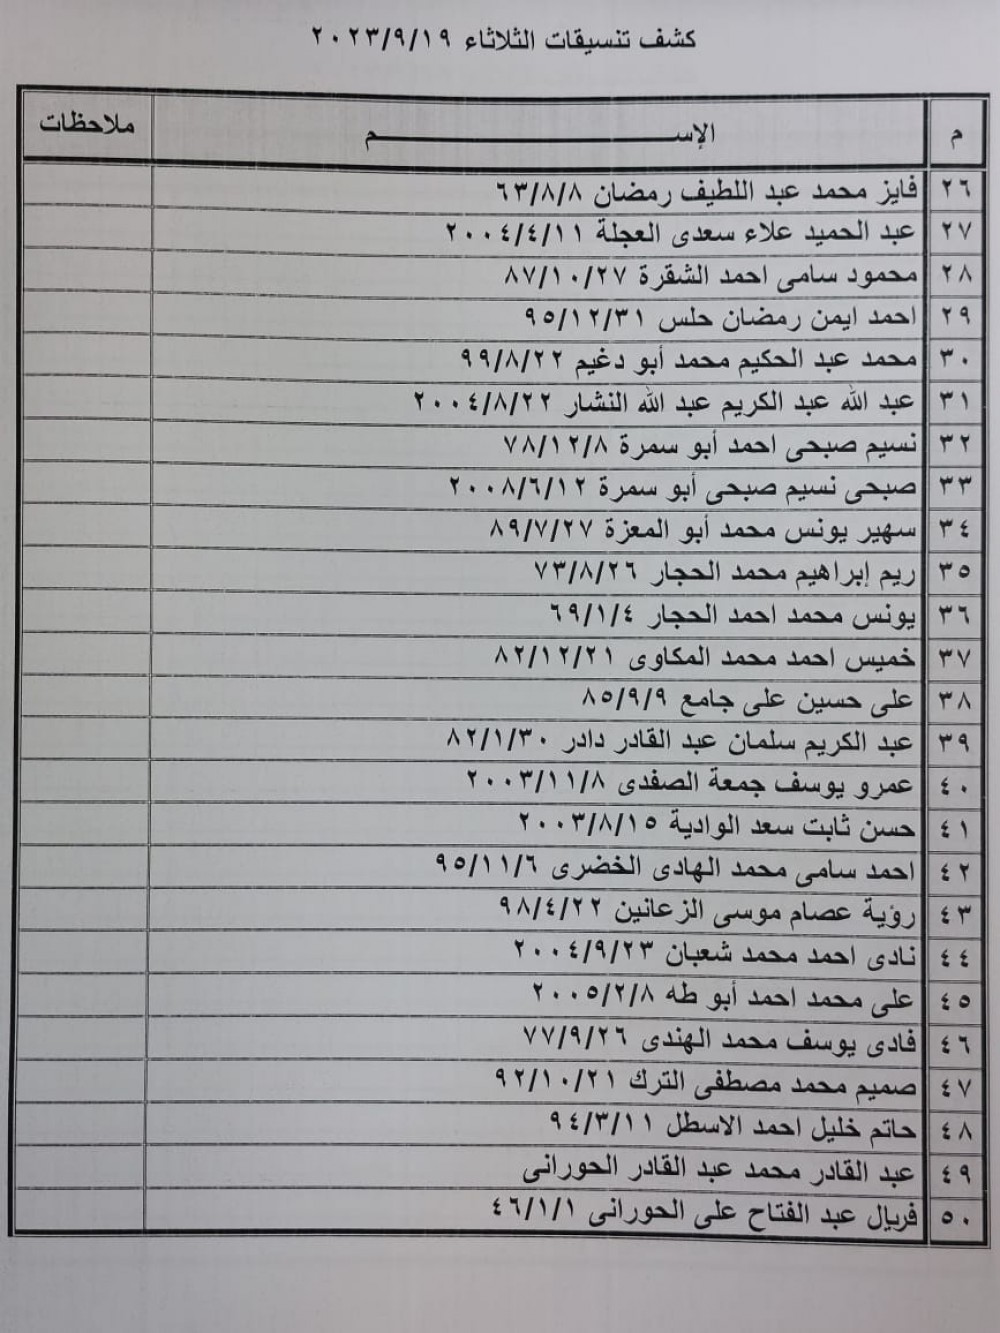 كشف تنسيقات الثلاثاء ٢٠٢٣/٩/١٩
م الإســـــــــــــم ملاحظات
٢٦ فايز محمد عبد اللطيف رمضان ٦٣/٨/٨
٢٧ عبد الحميد علاء سعدى العجلة ٢٠٠٤/٤/١١
٢٨ محمود سامى احمد الشقرة ٨٧/١٠/٢٧
٢٩ احمد ايمن رمضان حلس ٩٥/١٢/٣١
٣٠ محمد عبد الحكيم محمد أبو دغيم ٩٩/٨/٢٢
٣١ عبد الله عبد الكريم عبد الله النشار ٢٠٠٤/٨/٢٢
٣٢ نسيم صبحى احمد أبو سمرة ٧٨/١٢/٨
٣٣ صبحى نسيم صبحى أبو سمرة ٢٠٠٨/٦/١٢
٣٤ سهير يونس محمد أبو المعزة ٨٩/٧/٢٧
٣٥ ريم إبراهيم محمد الحجار ٧٣/٨/٢٦
٣٦ يونس محمد احمد الحجار ٦٩/١/٤
٣٧ خميس احمد محمد المكاوى ٨٢/١٢/٢١
٣٨ على حسين على جامع ٨٥/٩/٩
٣٩ عبد الكريم سلمان عبد القادر دادر ٨٢/١/٣٠
٤٠ عمرو يوسف جمعة الصفدى ٢٠٠٣/١١/٨
٤١ حسن ثابت سعد الوادية ٢٠٠٣/٨/١٥
٤٢ احمد سامى محمد الهادى الخضرى ٩٥/١١/٦
٤٣ رؤية عصام موسى الزعانين ٩٨/٤/٢٢
٤٤ نادى احمد محمد شعبان ٢٠٠٤/٩/٢٣
٤٥ على محمد احمد أبو طه ٢٠٠٥/٢/٨
٤٦ فادى يوسف محمد الهندى ٧٧/٩/٢٦
٤٧ صميم محمد مصطفى الترك ٩٢/١٠/٢١
٤٨ حاتم خليل احمد الاسطل ٩٤/٣/١١
٤٩ عبد القادر محمد عبد القادر الحورانى
٥٠ فريال عبد الفتاح على الحورانى ٤٦/١/١